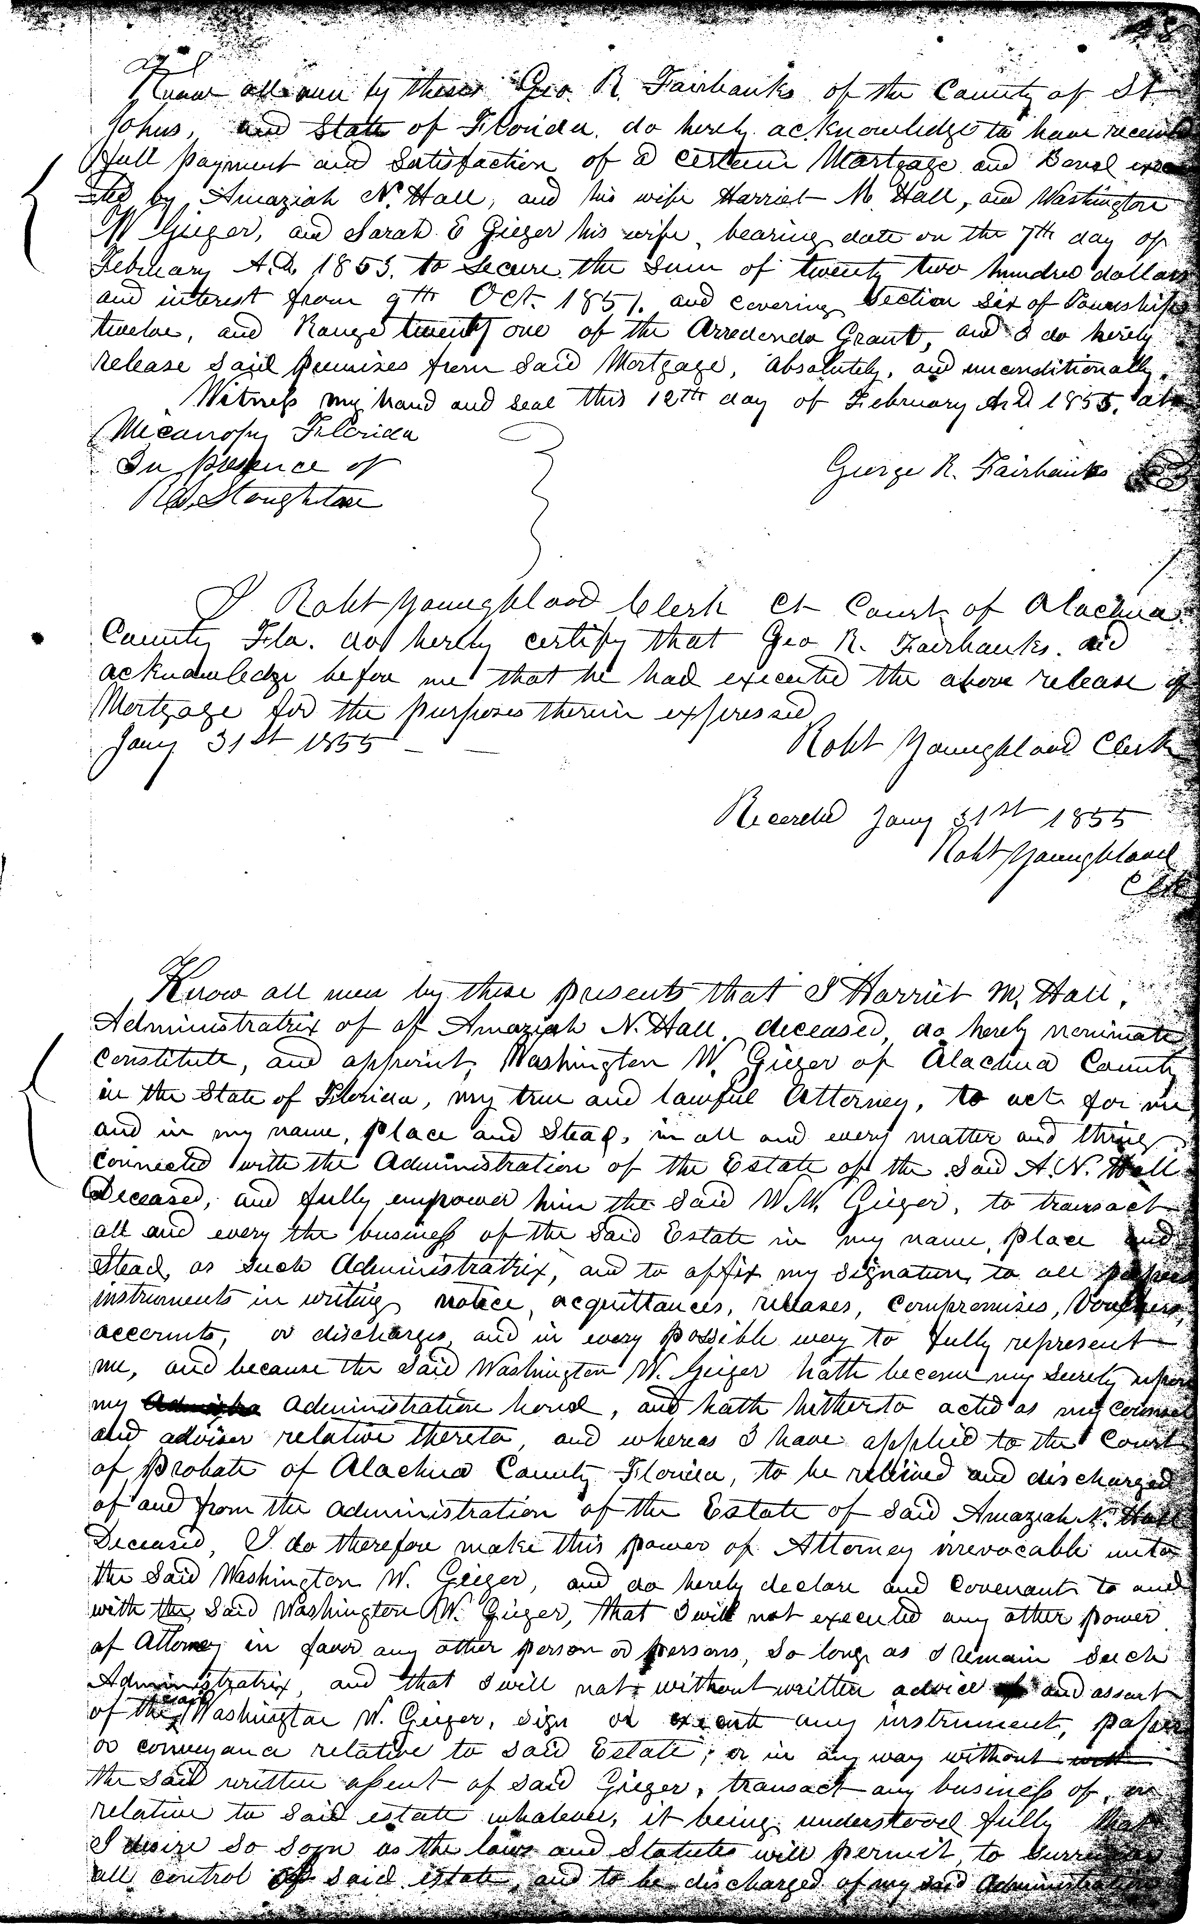 48
Know all men by these Geo. R. Fairbanks of the County of St
Johns, and State of Florida. do hereby acknowledge to have received
full payment and satisfaction of a certain Mortgage and Bond execu
ted by Amaziah N. Hall, and his wife Harriet M. Hall, and Washington
W Gieger, and Sarah E Gieger his wife, bearing date on the 7th day of
February A.D. 1853. to secure the sum of twenty two hundred dollars
and interest from 9th Oct. 1851. and covering Section six of Township
twelve, and Range twenty one of the Arredondo Grant, and I do hereby
release said premises from said Mortgage, absolutely, and unconditionally.
Witness my hand and seal this 12th day of February A.D 1855. at
Micanopy Florida
In presence of
George R. Fairbanks
Stoughton
I Robt Youngblood Clerk Ct Court of Alachua
County Fla. do hereby certify that Geo R. Fairbanks. did
acknowledge before me that he had executed the above release of
Mortgage for the purposes therein expressed
Jany 31st 1855
Robt Youngblood Clerk
Recorded Jany 31st 1855
Robt Youngblood
Clk
Know all men by these presents that I Harriet M. Hall,
Administratrix of of Amaziah N. Hall, deceased, do hereby nominate
constitute, and appoint, Washington W. Gieger of Alachua County
in the State of Florida, my true and lawful Attorney, to act for me
and in my name, place and Stead, in all and every matter and thing
connected with the Administration of the Estate of the said A. N. Hall
Deceased, and fully empower him the said W. W. Gieger, to transact
all and every the business of the said Estate in my name, place and
Stead, as such Administratrix, and to affix my signature to all papers
instruments in writing, notice, acquittances, releases, compromises, vouchers,
accounts, or discharges, and in every possible way to fully represent
me, and because the said Washington W. Geiger hath become my surety upon
my administration bond, and hath hitherto acted as my counsel
and adviser relative thereto, and whereas I have applied to the Court
of Probate of Alachua County Florida, to be relieved and discharged
of and from the administration of the Estate of said Amaziah N. Hall
Deceased, I do therefore make this power of Attorney irrevocable unto
the said Washington W. Geiger, and do hereby declare and covenant to and
with the said Washington W. Gieger, that I will not executed any other power
of Attorney in favor any other person or persons, so long as I remain such
Administratrix, and that I will not without written advice and assent
of the said Washington W. Gieger, sign or execute any instrument, paper
or conveyance relative to said Estate; or in any way without
the said written assent of said Gieger, transact any business of, or
relative to said estate whatever, it being understood fully that
I desire so soon as the laws and Statutes will permit, to surrender
all control of said estate, and to be discharged of my said Administration